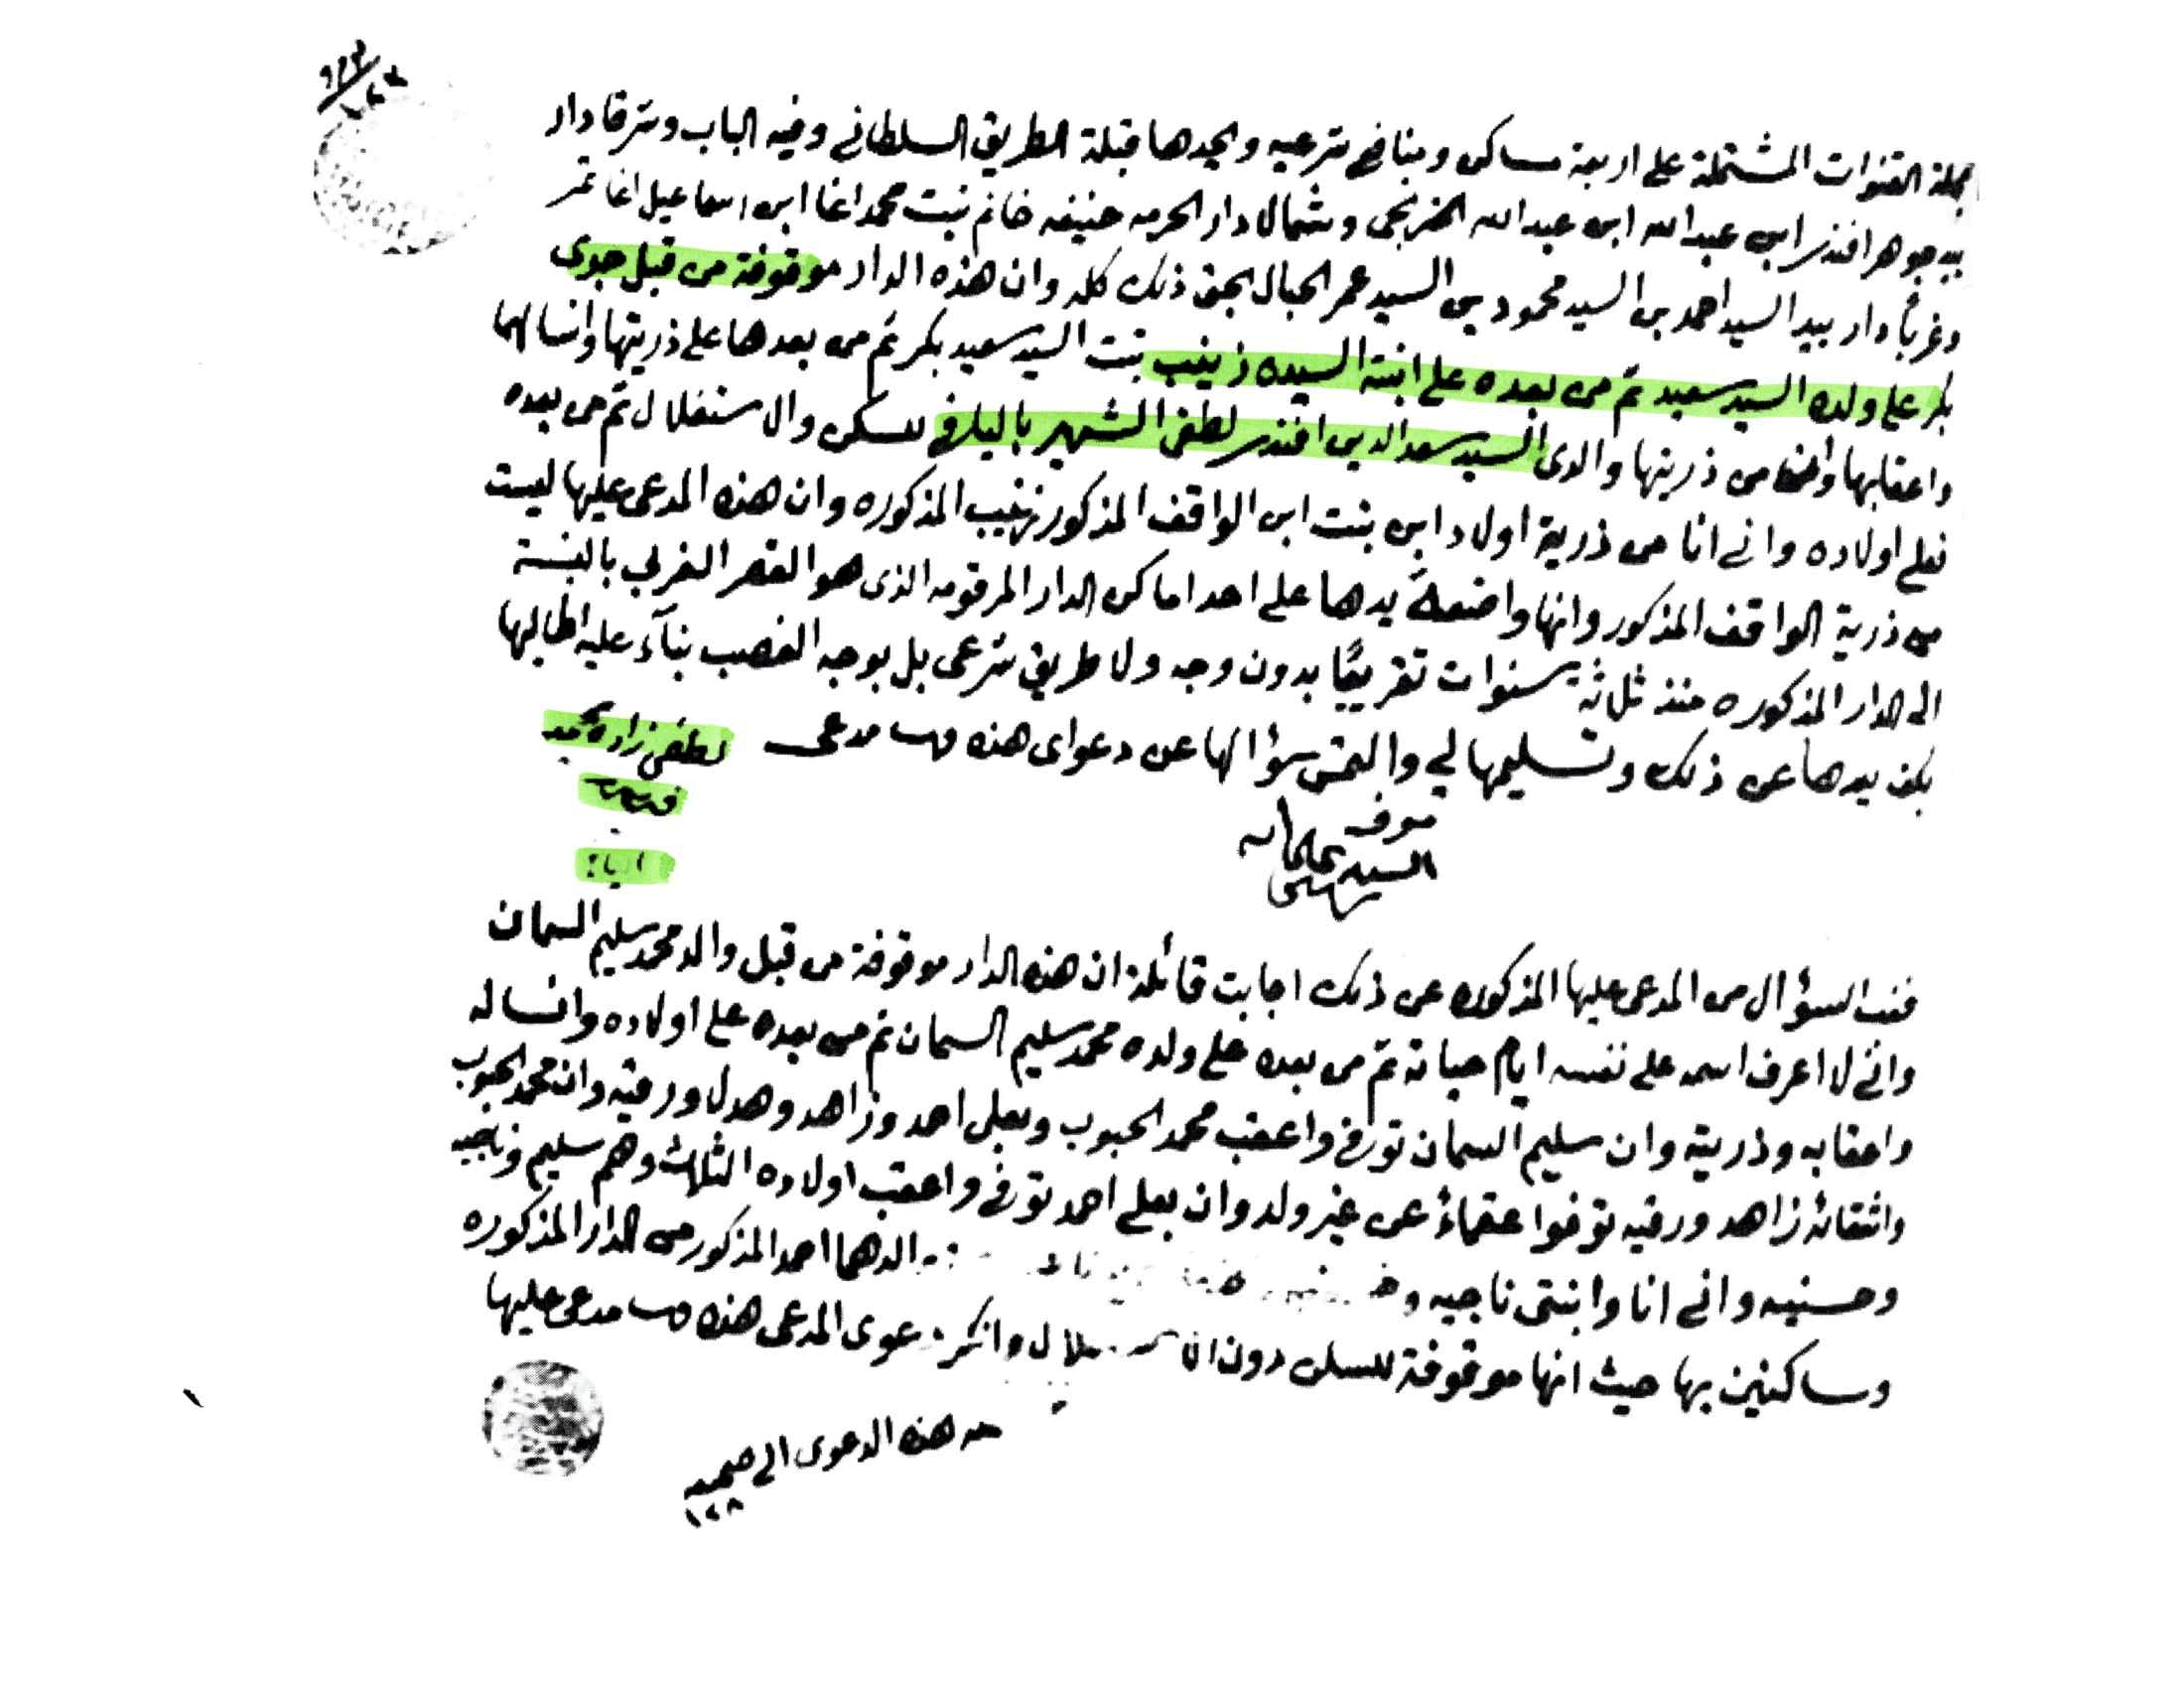 بمحلة القنوات المشتملة على اربعة مساكن ومنافع شرعيه ويحدها قبلة الطريق السلطاني وفيه الباب وشرقا دار
بيد جوهر افندي ابن عبدالله ابن عبدالله الخزبجي وشمالا دار الحرمه حنيفه خانم بنت محمد اغا ابن اسماعيل اغا تمر
وغرباً دار بيد السيد احمد بن السيد محمود بن السيد عمر الحبال بحق ذلك كله وان هذه الدار موقوفة من قبل جدي
بكر على ولده السيد سعيد ثم من بعده على ابنته السيده زينب بنت السيد سعيد بكر ثم من بعدها على ذريتها وانسالهما
واعقابها من ذريتها والدي السيد سعد الدين افندي لطفي الشهير بالبلاغ للسكن والاستغلال ثم من بعده
فعلى اولاده واني انا من ذرية اولاد ابن بنت ابن الواقف المذكور زينب المذكوره وان هذه المدعى عليها ليست
من ذرية الواقف المذكور وانها واضعة يدها على احد اماكن الدار المرقومه الذي هو القصر الغربي بالنسبة
الى الدار المذكوره منذ ثلاثة سنوات تقريبًا بدون وجه ولا طريق شرعي بل بوجه الغصب بناء عليه اطالبها
بكف يدها عن ذلك وتسليمها لي والتمس سؤالها عن دعواي هذه مدعي لطفي زاده
السيد
فلدى السؤال من المدعى عليها المذكوره عن ذلك اجابت قائلة ان هذه الدار موقوفة من قبل والد محمد سليم السمان
واني لا اعرف اسمه على نفسه ايام حياته ثم من بعده على ولده محمد سليم السمان ثم من بعده على اولاده وانساله
واعقابه وذريته وان سليم السمان توفي واعقب محمد الحبوب وبعلي احمد وزاهد وهدلا ورقيه وان محمد الحبوب
واشقائه زاهد ورقيه توفوا عقماءً عن غير ولد وان بعلي احمد توفي واعقب اولاده الثلاث وهم سليم وناجيه
وحسنيه واني انا وابنتي ناجيه والدهما احمد المذكور من الدار المذكوره
وساكنين بها حيث انها موقوفة للسكن دون وانكر دعوى المدعي هذه مدعى عليها
هذه الدعوى الى